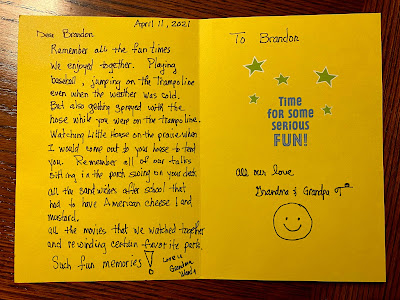 April 11, 2021
Dear Brandon
Remember all the fun times
We enjoyed together. Playing
baseball, jumping on the trampoline
even when the weather was cold.
But also getting sprayed with the
hose while you were on the trampoline.
Watching Little House on the prairie when
I would come out to your house to tend
you. Remember all of our talks
sitting in the porch swing on your deck
all the sandwiches after school that
had to have American cheese and
mustard.
all the movies that we watched together
and rewinding certain favorite parts.
Such fun memories!
Love ya
Grandma
To Brandon
TIME
FOR SOME
SERIOUS
FUN!
All our love
Grandma & Grandpa